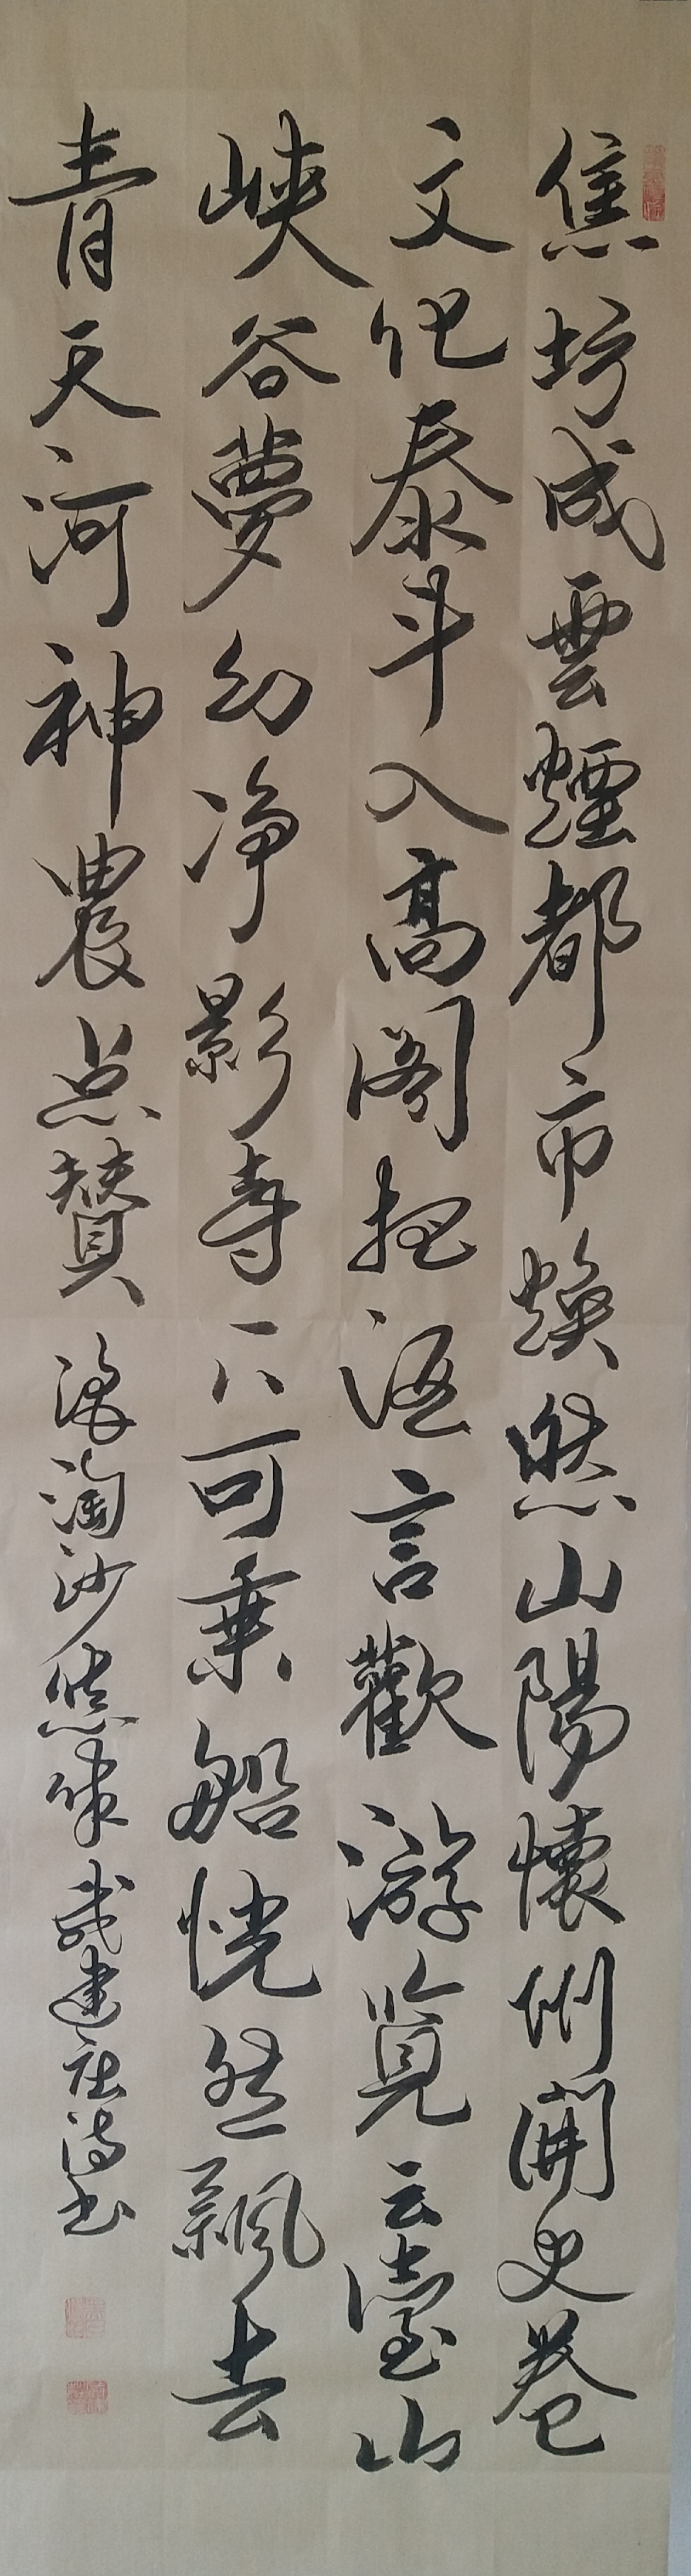 焦坊成雲煙都市煥然山陽懷州開史卷
文化泰斗入高阁把酒言歡游覽云臺山
峽谷夢幻净影寺下可乘船恍然飄去
青天河神農点赞 浪淘沙 建社诗书